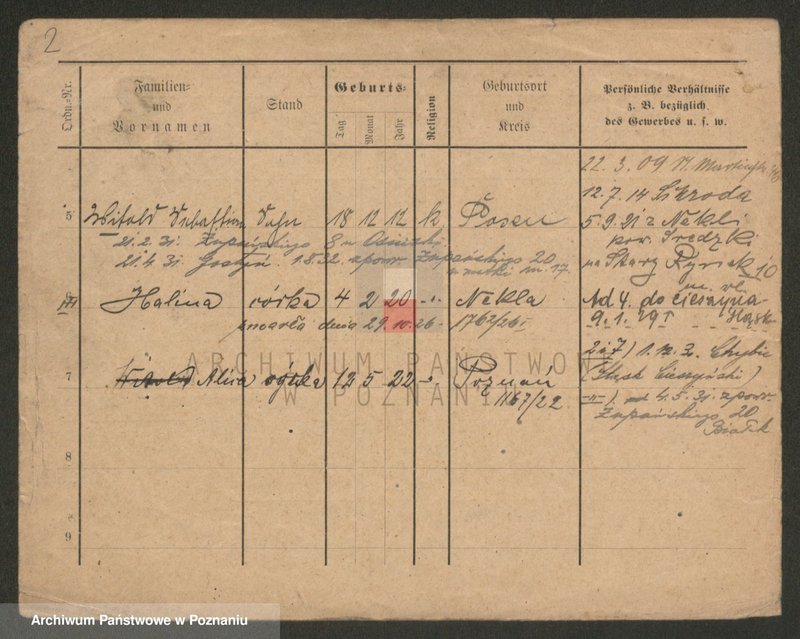 2
Ordn.-Nr.
Familien-
und
Vornamen
Stand
Geburts-
Tag
Monat
Jahr
Religion
Geburtsort
und
Kreis
Persönliche Verhältnisse
z. B. bezüglich
des Gewerbes u. s. w.
22. 3. 09
12. 7. 14
5 Witold Sohn 18 12 12 k Posen
5. 9. 21 z Nekli
pow. Średzki
21. 2. 31. Żupańskiego 8 u
na Stary Rynek 10
21. 4. 31. Gostyń 1. 8. 32. z pow. Żupańskiego 20
m. 17
6 Halina córka 4 2 20 -"- Nekla
Ad 4. do Cieszyna
zmarła dnia 29. 10. 26 - 1762/26
9. 1. 29
ARCHIWUM PAŃSTWOWE
W POZNANIU
2 i 7) 1. 12. 3.
7 Witold Alina córka 12 5 22 -"- Poznań
1167/22
(Śląsk Cieszyński)
-"-) od 4. 5. 31. z pow.
Żupańskiego 20
8
9
Archiwum Państwowe w Poznaniu